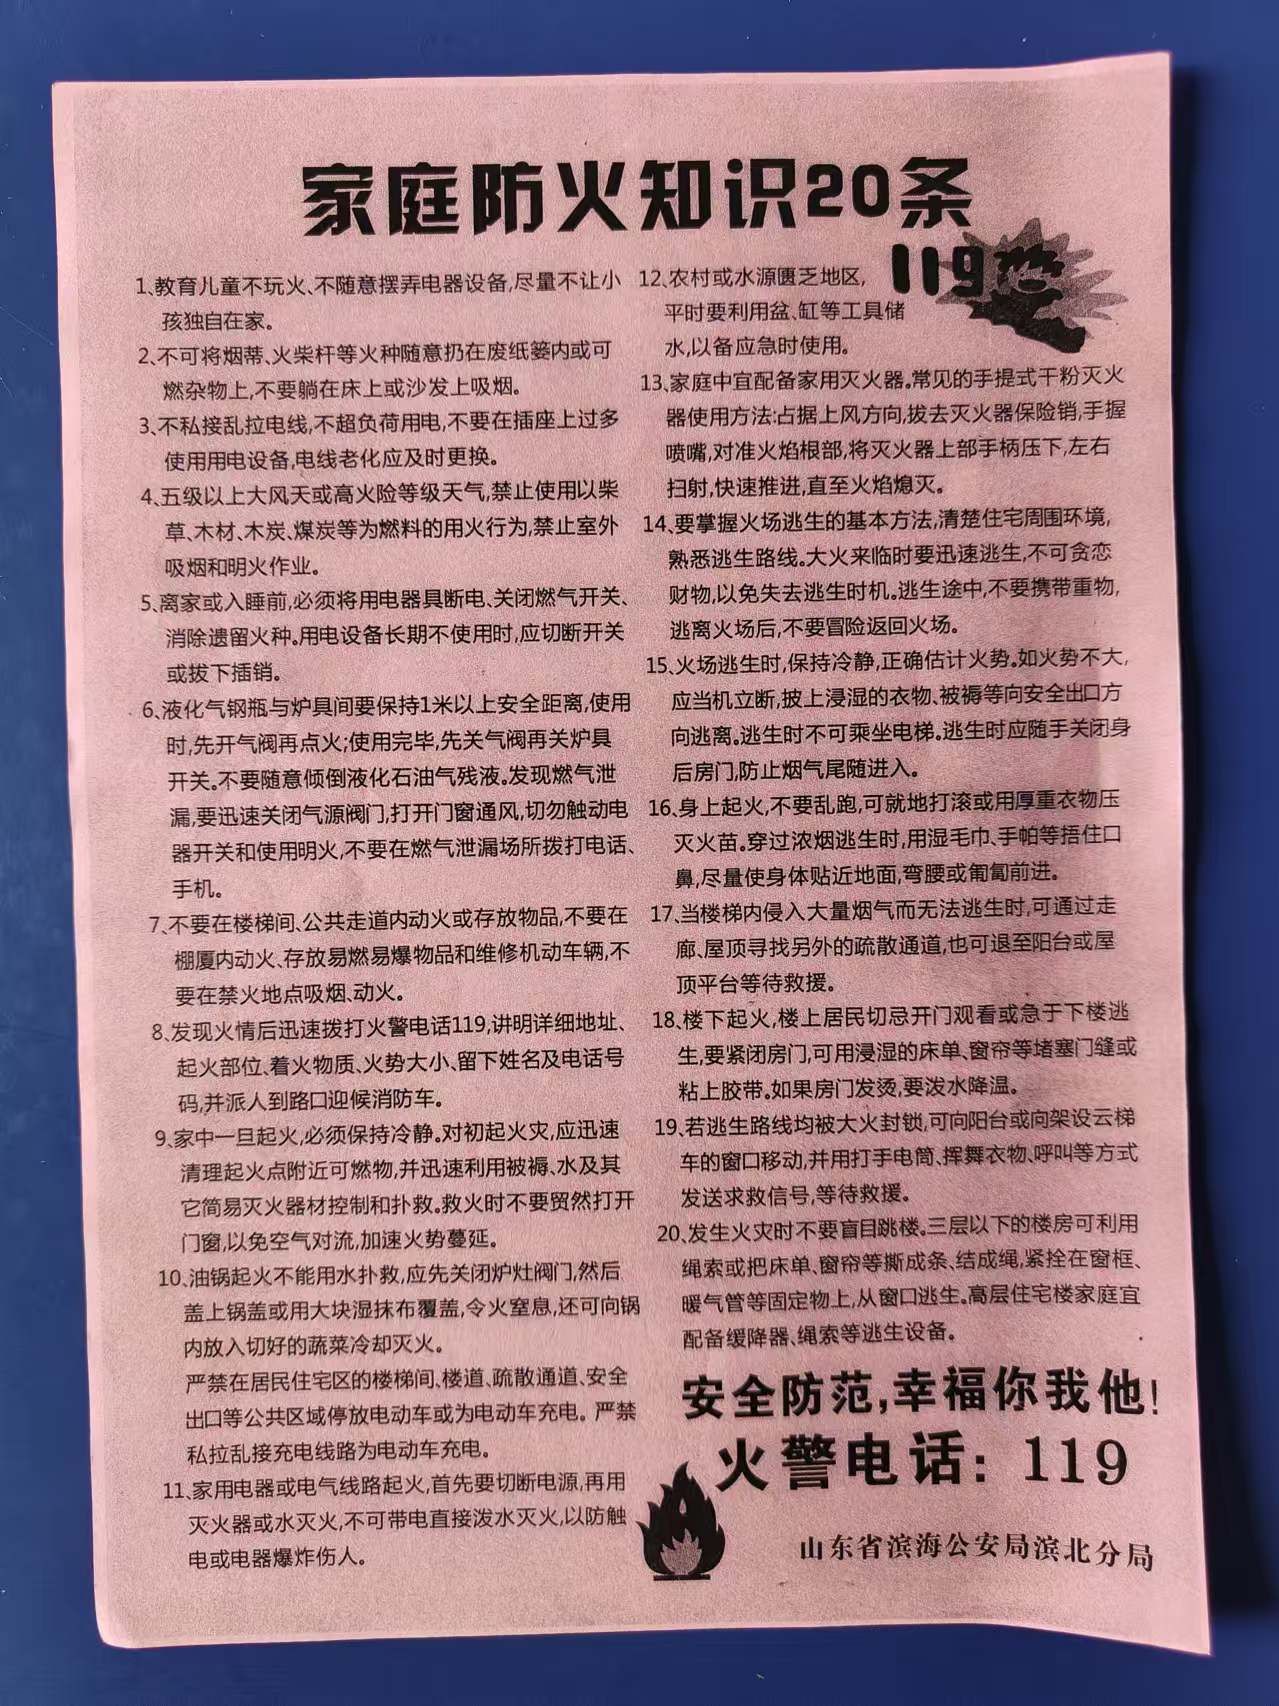 家庭防火知识20条
119
1、教育儿童不玩火、不随意摆弄电器设备,尽量不让小
孩独自在家。
2、不可将烟蒂、火柴杆等火种随意扔在废纸篓内或可
燃杂物上,不要躺在床上或沙发上吸烟。
3、不私接乱拉电线,不超负荷用电,不要在插座上过多
使用用电设备,电线老化应及时更换。
4、五级以上大风天或高火险等级天气,禁止使用以柴
草、木材、木炭、煤炭等为燃料的用火行为,禁止室外
吸烟和明火作业。
5、离家或入睡前,必须将用电器具断电、关闭燃气开关、
消除遗留火种。用电设备长期不使用时,应切断开关
或拔下插销。
6、液化气钢瓶与炉具间要保持1米以上安全距离,使用
时,先开气阀再点火;使用完毕,先关气阀再关炉具
开关。不要随意倾倒液化石油气残液。发现燃气泄
漏,要迅速关闭气源阀门,打开门窗通风,切勿触动电
器开关和使用明火,不要在燃气泄漏场所拨打电话、
手机。
7、不要在楼梯间、公共走道内动火或存放物品,不要在
棚厦内动火、存放易燃易爆物品和维修机动车辆,不
要在禁火地点吸烟、动火。
8、发现火情后迅速拨打火警电话119,讲明详细地址、
起火部位、着火物质、火势大小、留下姓名及电话号
码,并派人到路口迎候消防车。
9、家中一旦起火,必须保持冷静。对初起火灾,应迅速
清理起火点附近可燃物,并迅速利用被褥、水及其
它简易灭火器材控制和扑救。救火时不要贸然打开
门窗,以免空气对流,加速火势蔓延。
10、油锅起火不能用水扑救,应先关闭炉灶阀门,然后
盖上锅盖或用大块湿抹布覆盖,令火窒息,还可向锅
内放入切好的蔬菜冷却灭火。
严禁在居民住宅区的楼梯间、楼道、疏散通道、安全
出口等公共区域停放电动车或为电动车充电。严禁
私拉乱接充电线路为电动车充电。
11、家用电器或电气线路起火,首先要切断电源,再用
灭火器或水灭火,不可带电直接泼水灭火,以防触
电或电器爆炸伤人。
12、农村或水源匮乏地区,
平时要利用盆、缸等工具储
水,以备应急时使用。
13、家庭中宜配备家用灭火器。常见的手提式干粉灭火
器使用方法:占据上风方向,拔去灭火器保险销,手握
喷嘴,对准火焰根部,将灭火器上部手柄压下,左右
扫射,快速推进,直至火焰熄灭。
14、要掌握火场逃生的基本方法,清楚住宅周围环境,
熟悉逃生路线。大火来临时要迅速逃生,不可贪恋
财物,以免失去逃生时机。逃生途中,不要携带重物,
逃离火场后,不要冒险返回火场。
15、火场逃生时,保持冷静,正确估计火势。如火势不大,
应当机立断,披上浸湿的衣物、被褥等向安全出口方
向逃离。逃生时不可乘坐电梯。逃生时应随手关闭身
后房门,防止烟气尾随进入。
16、身上起火,不要乱跑,可就地打滚或用厚重衣物压
灭火苗。穿过浓烟逃生时,用湿毛巾、手帕等捂住口
鼻,尽量使身体贴近地面,弯腰或匍匐前进。
17、当楼梯内侵入大量烟气而无法逃生时,可通过走
廊、屋顶寻找另外的疏散通道,也可退至阳台或屋
顶平台等待救援。
18、楼下起火,楼上居民切忌开门观看或急于下楼逃
生,要紧闭房门,可用浸湿的床单、窗帘等堵塞门缝或
粘上胶带。如果房门发烫,要泼水降温。
19、若逃生路线均被大火封锁,可向阳台或向架设云梯
车的窗口移动,并用打手电筒、挥舞衣物、呼叫等方式
发送求救信号,等待救援。
20、发生火灾时不要盲目跳楼。三层以下的楼房可利用
绳索或把床单、窗帘等撕成条、结成绳,紧拴在窗框、
暖气管等固定物上,从窗口逃生。高层住宅楼家庭宜
配备缓降器、绳索等逃生设备。
安全防范,幸福你我他!
火警电话: 119
山东省滨海公安局滨北分局